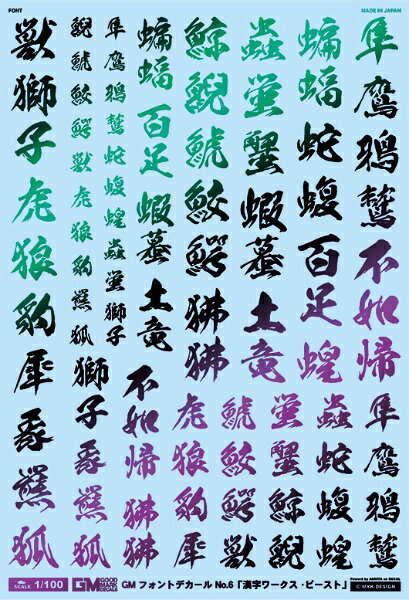 FONT
MADE IN JAPAN
隼鷹鴉鷲不如帰
蝙蝠蛇蝮百足蝗
蟲蛍蟹蝦蟇土竜
鯨鯢鯱鮫鰐狒狒
蝙蝠百足蝦蟇土竜
隼鷹鴉鷲蛇蝮蝗蟲蛍獅子
鯢鯱鮫鰐獣虎狼豹羆狐
獣獅子虎狼豹犀羆狐
隼鷹鴉鷲
蟲蛇蝮蝗
蛍蟹鯨
鯱鮫鰐
虎狼豹
不如帰狒狒
獅子羆狐
SCALE 1/100
GM GOOD
GM フォントデカール No.6「漢字ワークス・ビースト」
© MYK DESIGN